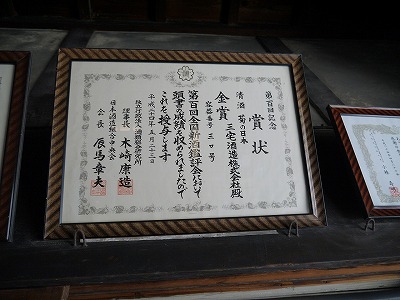 第百回記念
賞状
清酒 菊の日本
三宅酒造株式会社殿
金賞
容器番号 三〇号
第百回全国新酒鑑評会において
頭書の成績を収められましたので
これを授与します
平成二十四年五月二十三日
独立行政法人酒類総合研究所
理事長 木崎康造
日本酒造組合中央会
会長 辰馬章夫